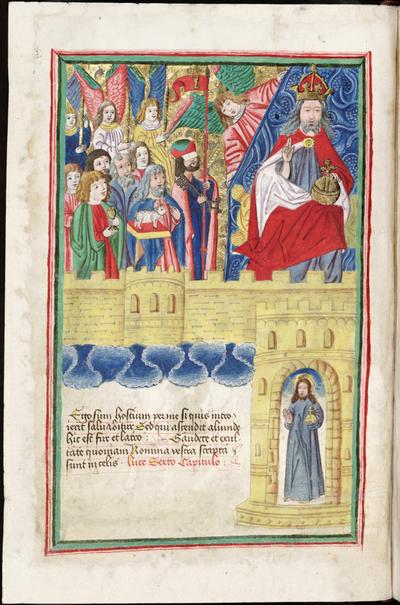 Ego sum hostium per me si quis intro
ierit salvabitur Sed qui ascendit aliunde
hic est fur et latro : Gaudete et exul
tate quoniam Nomina vestra scripta
sunt in celis : Luce Sexto Capitulo :